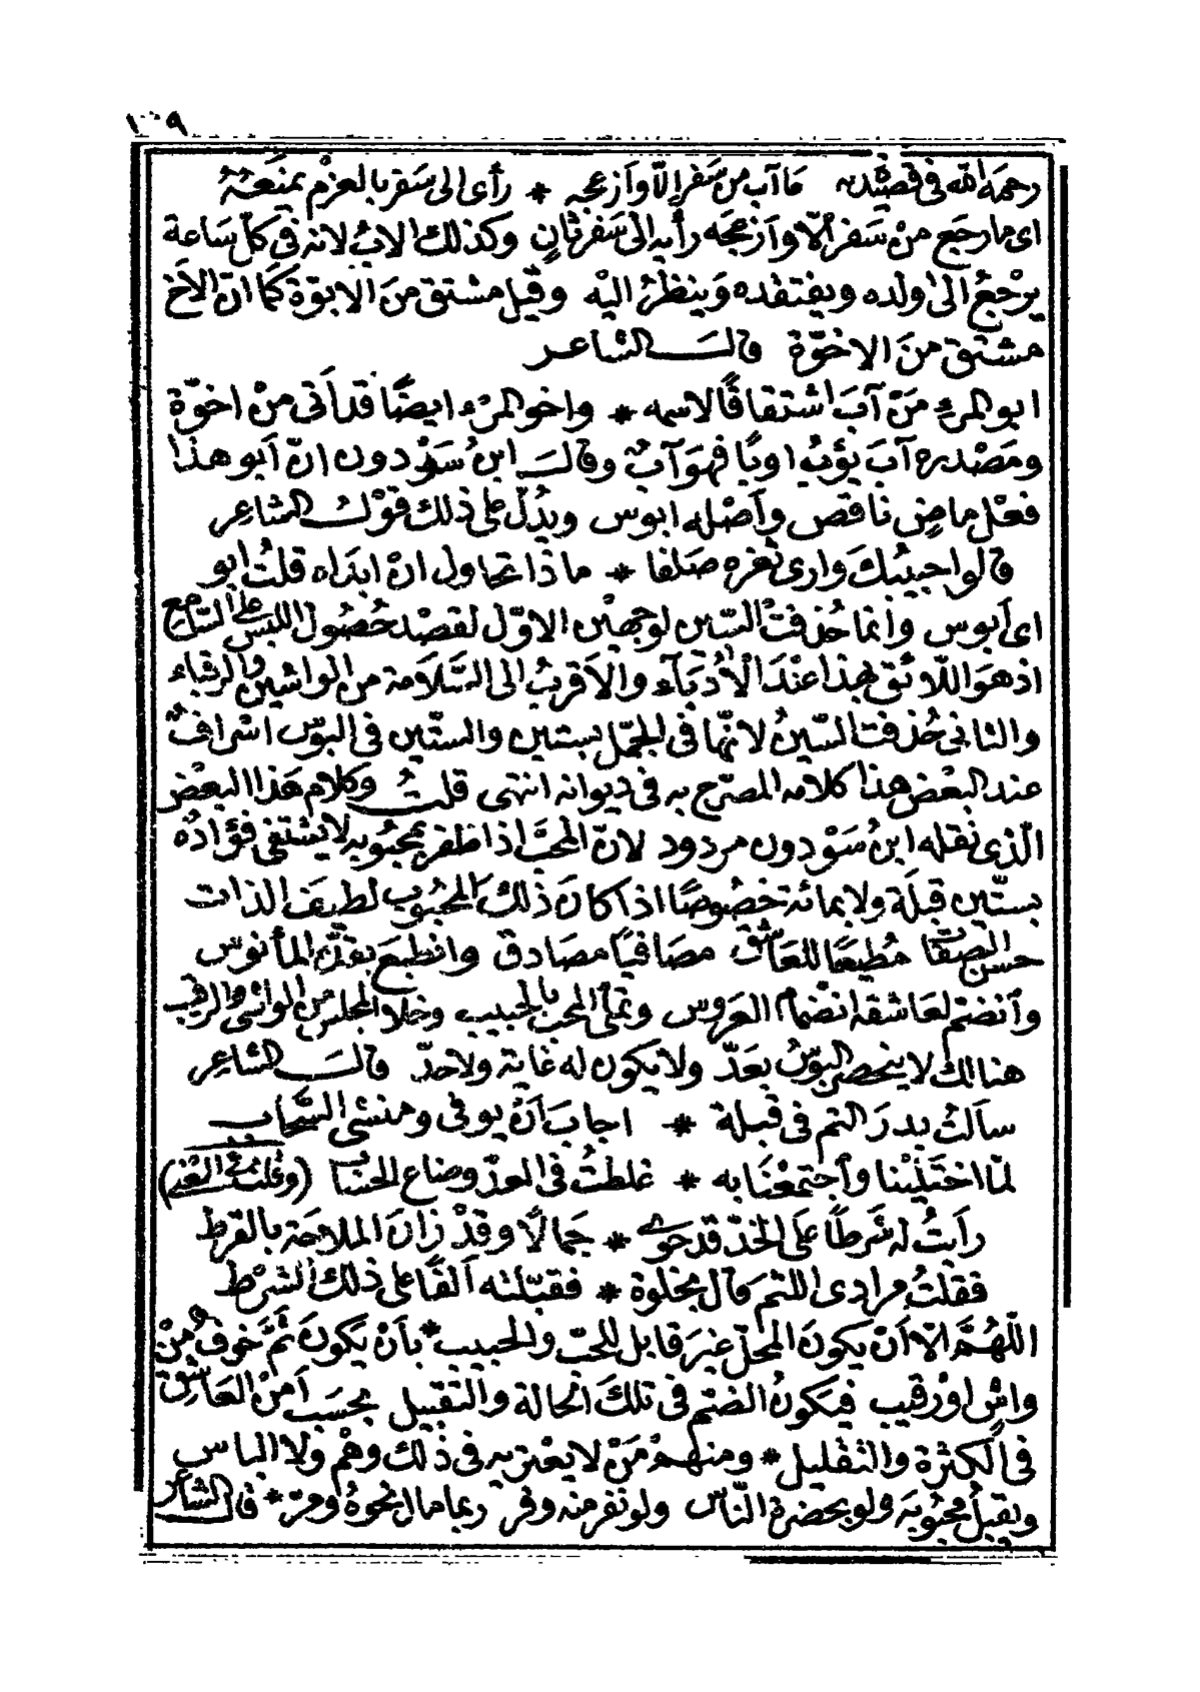 ١٠٩
رحمه الله فى قصيدته ما آب من سفر إلّا وأزعجه * رأى الى سفر بالعزم يمنعه
اى ما رجع من سفر الّا وازعجه رأيه الى سفر ثانٍ وكذلك الاب لانه فى كلّ ساعة
يرجع الى ولده ويفتقده وينظر اليه وقيل مشتق من الابوّة كما انّ الاخ
مشتق من الاخوّة قال الشاعر
ابو المرء من آبَ اشتقاقًا لاسمه * واخو المرء ايضًا قد أتى من اخوّة
ومصدره آب يؤب اوبًا فهو آب وقال ابن سودون انّ أبو هذا
فعل ماض ناقص وأصله ابوس ويدلّ على ذلك قول الشاعر
قالوا حبيبك وارى ثغره صلفا * ماذا تحاول ان ابداه قلت ابو
اى أبوس وانما حذفت السّين لوجهين الاوّل لقصد حصول اللبس على السّامع
اذ هو اللائق بهذا عند الأدباء والاقرب الى السّلامة من الواشين والرقباء
والثانى حذفت السّين لانّها فى الجمّل بستين والستّين فى البوس اسراف
عند البعض هذا كلامه المصرّح به فى ديوانه انتهى قلت وكلام هذا البعض
الّذى نقله ابن سودون مردود لانّ المحبّ اذا ظفر بمحبوبه لا يشتفى فؤاده
بستّين قبلة ولا بمائة خصوصًا اذا كان ذلك المحبوب لطيف الذات
حسن الصفات مطيعًا للعاشق مصافيًا مصادق وانطبع بقدّه المأنوس
وأنضمّ لعاشقه انضمام العروس وتملّى المحبّ بالحبيب وخلا المجلس من الواشى والرقيب
هنالك لا ينحصر البوس بعدّ ولا يكون له غاية ولا حدّ قال الشاعر
سألت بدر التم فى قبلة * اجاب أن يوفى ومنشى السّحاب
لمّا اختلينا وأجتمعنا به * غلطت فى العدّ وضاع الحساب (وقلت فى المعنى)
رأيت له شرطًا على الخدّ قد حوى * جمالًا وقد زان الملاحة بالقرط
فقلت مرادى اللثم قال بخلوة * فقبّلته ألفًا على ذلك الشرط
اللّهمّ الا أن يكون المحلّ غير قابل للمحبّ والحبيب * بأن يكون ثمّ خوف من
واش او رقيب فيكون الضم فى تلك الحالة والتقبيل بحسب أمن العاشق
فى الكثرة والتقليل * ومنهم من لا يعتريه فى ذلك وهم ولا الباس
ويقبل محبوبه ولو بحضرة النّاس ولو نفر منه وفر ربما مال نحوه ومرّ * قال الشاعر